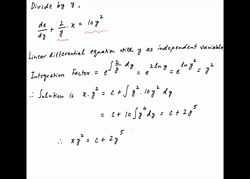 Divide by y,
dx/dy + 2/y . x = 10y²
Linear differential equation with y as independent variable
Integration Factor = e^(∫ 2/y dy) = e^(2 ln y) = e^(ln y²) = y²
∴ Solution is x . y² = c + ∫ y² . 10y² dy
= c + 10 ∫ y⁴ dy = c + 2y⁵
∴ xy² = c + 2y⁵